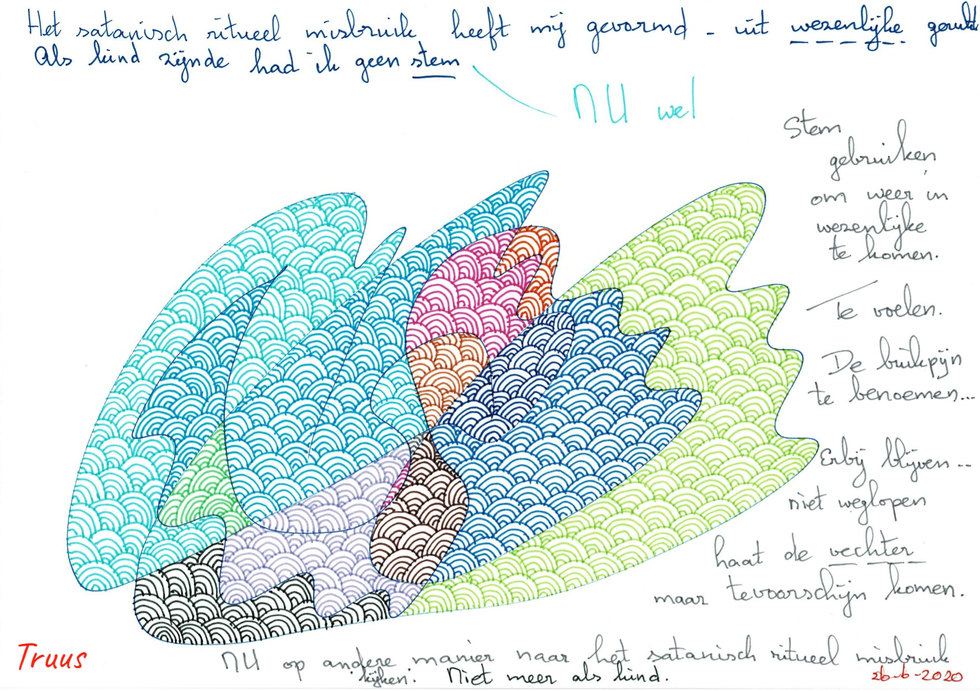 Het satanisch ritueel misbruik heeft mij gevormd - uit wezenlijke
Als kind zijnde had ik geen stem
NU wel
Stem
gebruiken
om weer in
wezenlijke
te komen.
Te voelen.
De buikpijn
te benoemen...
Erbij blijven..
niet weglopen
haat de vechter
maar tevoorschijn komen.
NU op andere manier naar het satanisch ritueel misbruik
kijken. Niet meer als kind.
Truus
26-6-2020